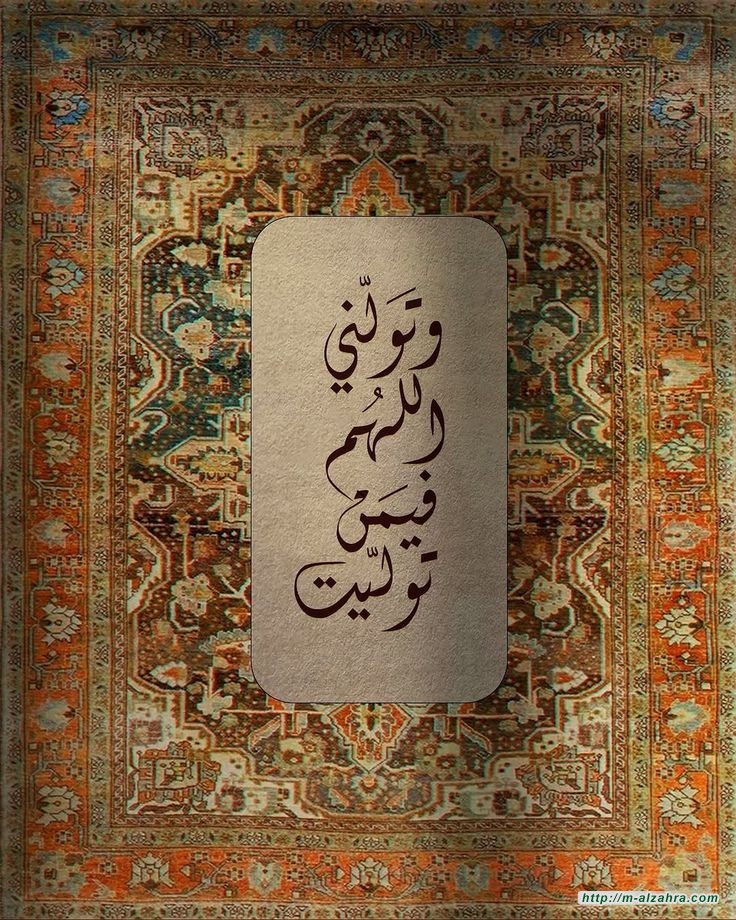 وتَوَلّني
اللهُم
فيمَنْ
توليّت
http://m-alzahra.com